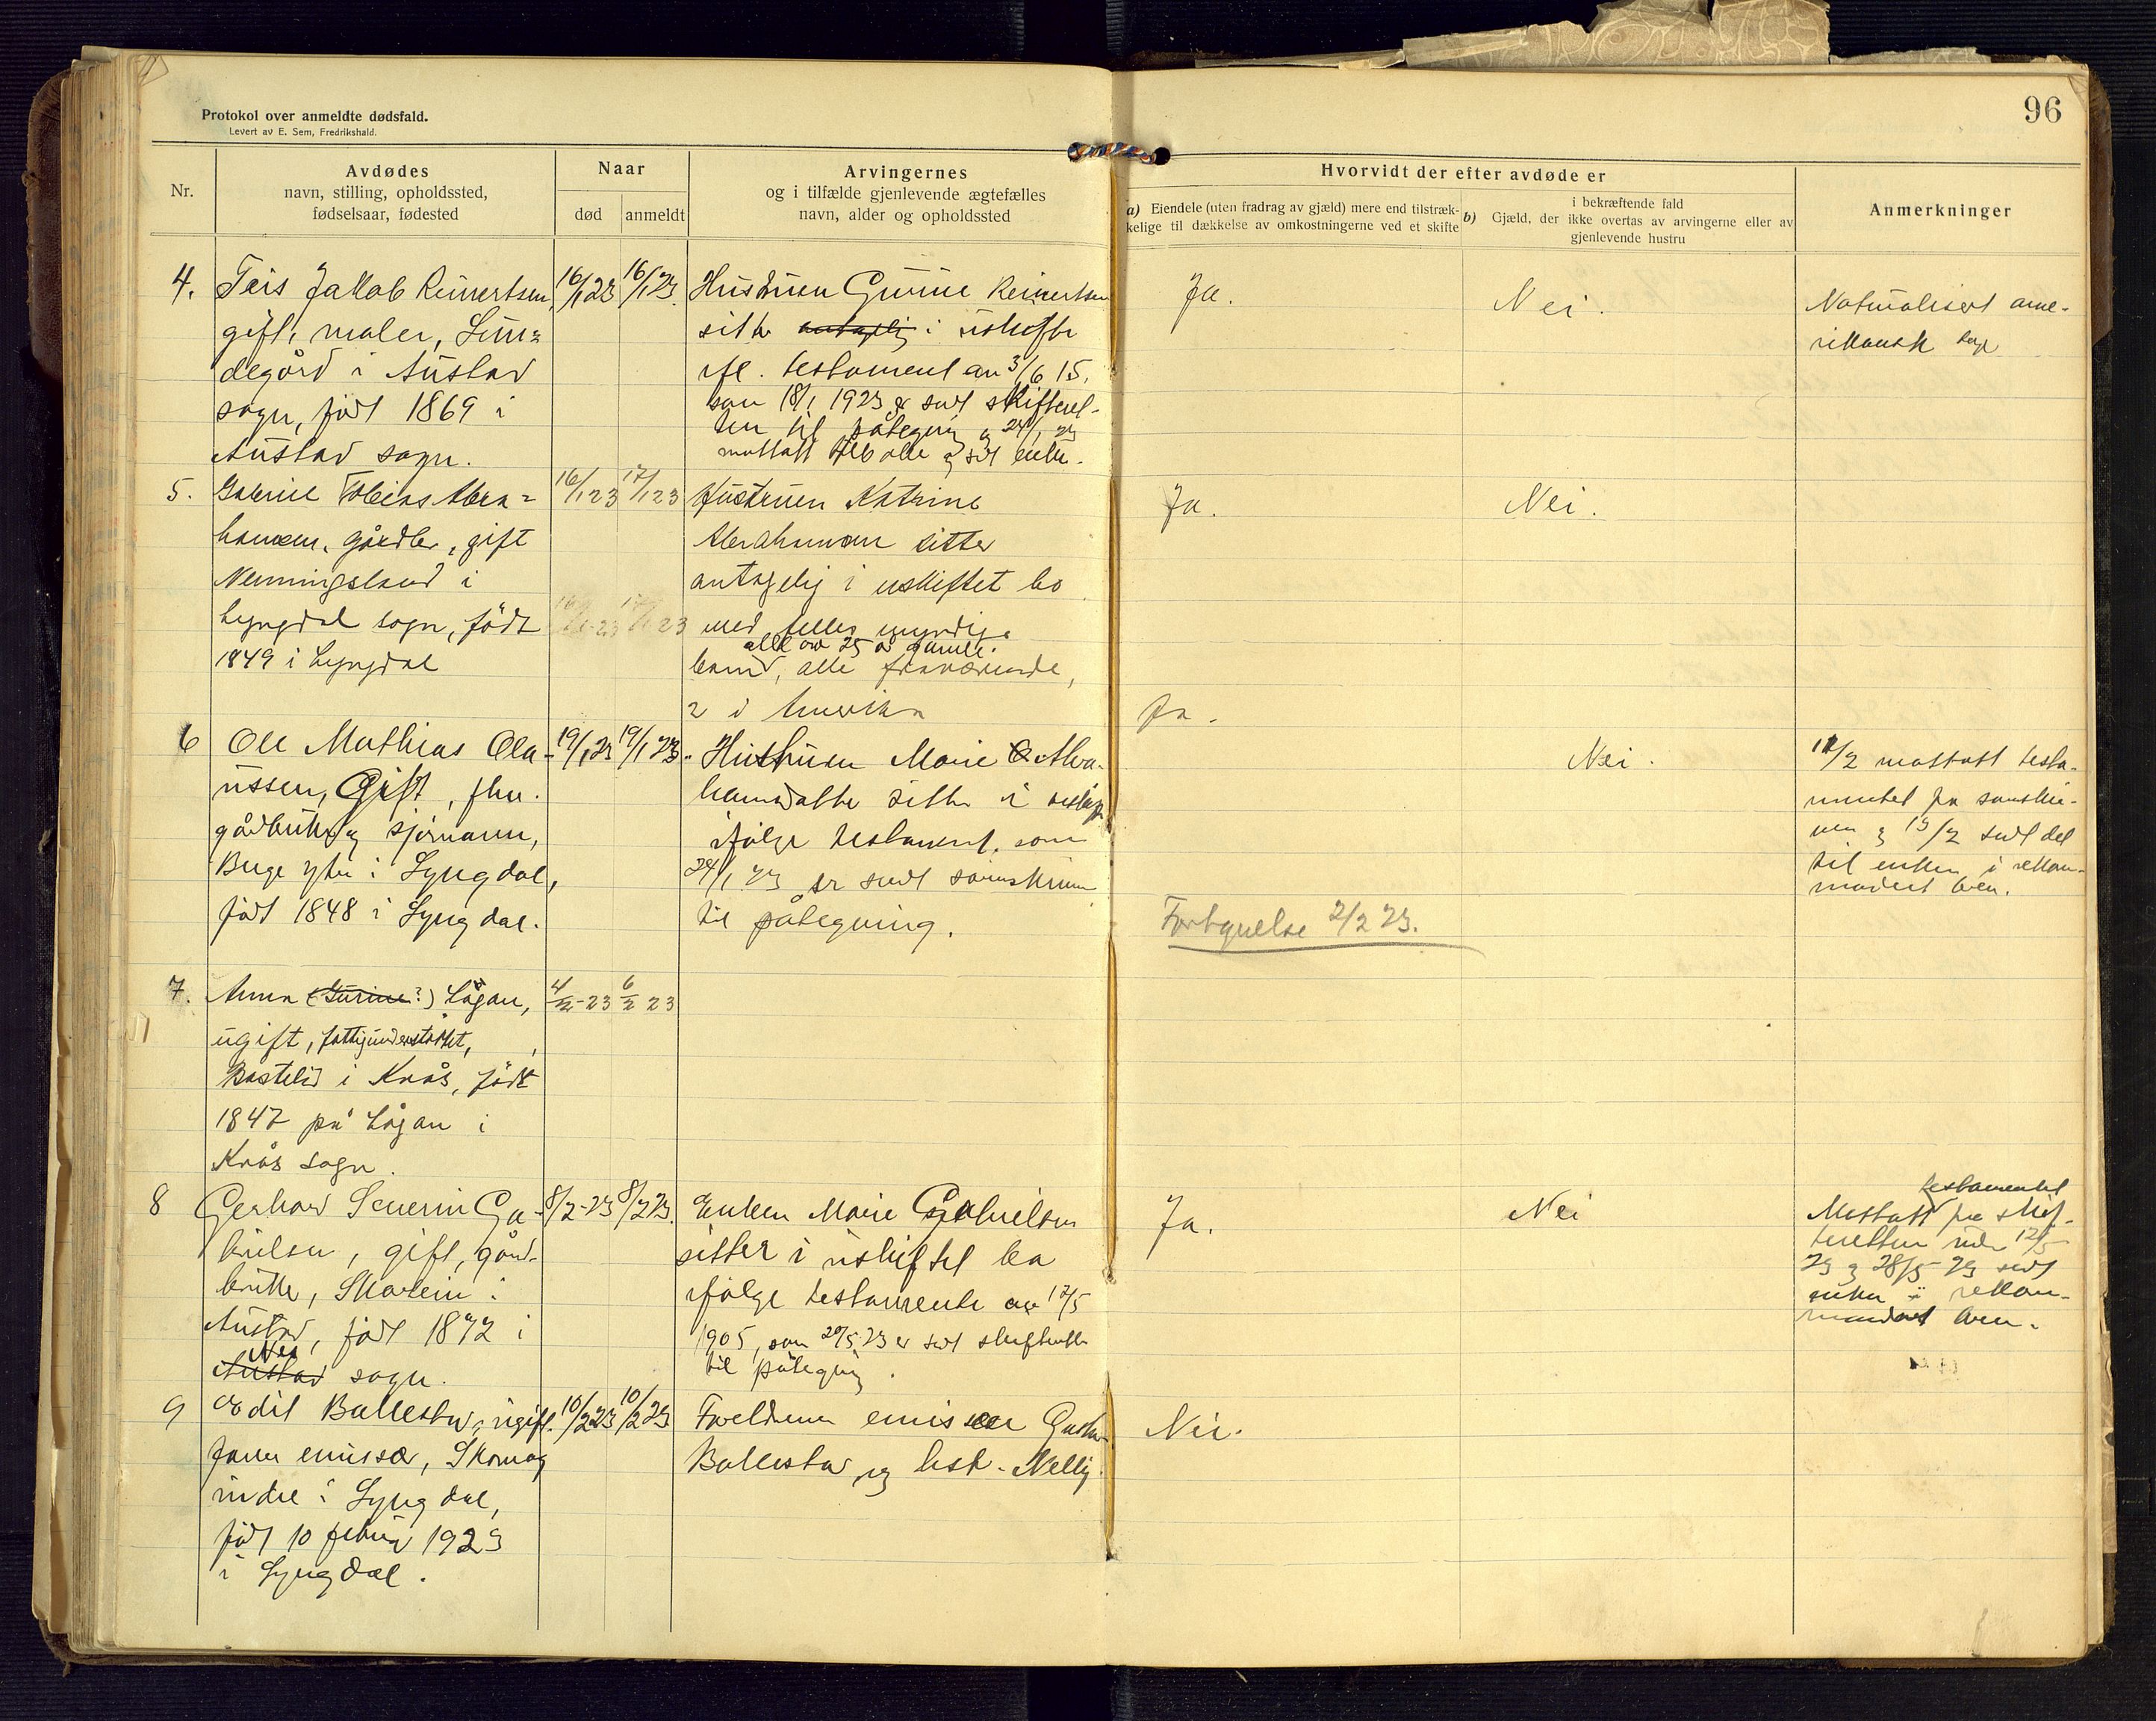 Protokol over anmeldte dødsfald.
Levert av E. Sem, Fredrikshald.
96
Nr.
Avdødes
navn, stilling, opholdssted,
fødselsaar, fødested
Naar
død
anmeldt
Arvingernes
og i tilfælde gjenlevende ægtefælles
navn, alder og opholdssted
Hvorvidt der efter avdøde er
a) Eiendele (uten fradrag av gjæld) mere end tilstræk-
kelige til dækkelse av omkostningerne ved et skifte
i bekræftende fald
b) Gjæld, der ikke overtas av arvingerne eller av
gjenlevende hustru
Anmerkninger
4.
Teis Jakob Reinertsen,
gift, maler, Lun=
degård i Austad
sogn, født 1869 i
Austad sogn.
16/1 23
16/1 23.
Hustruen Gurine Reinertsen
sitter antagelig i uskifte
ifl. testament av 3/6 15.
som 18/1 1923 er sendt skifteret-
ten til påtegning og 24/1 23
mottatt tilbake og sendt enken.
Ja.
Nei.
Naturalisert ame-
rikansk
5.
Gabriel Tobias Abra=
hamsen, gårdbr, gift
Nenningsland i
Lyngdal sogn, født
1849 i Lyngdal
16/1 23
17/1 23
Hustruen Katrine
Abrahamsen sitter
antagelig i uskiftet bo
med felles myndige
alle over 25 år gamle.
barn, alle fraværende,
2 i Amerika
Ja.
Nei.
Ja.
6
Ole Mathias Ola-
ussen, Gift, fhv.
gårdbruker og sjømann,
Berge ytre i Lyngdal,
født 1848 i Lyngdal.
19/1 23
19/1 23.
Hustruen Marie Abra-
hamsdatter sitter i
ifølge testament, som
24/1 23 er sendt sorenskriveren
til påtegning.
Nei.
mottatt testa-
mentet fra sorenskri-
ven og 15/2 sendt det
til enken i rekom-
mandert brev.
Forbguelse 2/2 23.
7.
Anna (Gurine?) Lågan,
ugift, fattigunderstøttet,
Bastelid i Kvås, født
1847 på Lågan i
Kvås sogn.
4/2-23
6/2 23
8
Gerhard Severin Ga-
brielsen, gift, gård-
bruker, Skarstein i
Austad, født 1872 i
Nes
Austad sogn.
8/2-23
8/2 23.
Enken Marie Gabrielsen
sitter i uskiftet bo
ifølge testamente av 17/5
1905, som 20/5 23 er sendt skifteretten
til påtegning.
Ja.
Nei
testamentet
Mottatt fra skif-
teretten
23 og 28/5 23 sendt
enken i rekom-
mandert brev.
9
Edit Ballestad, ugift.
faren emissær, Skomag
indre i Lyngdal,
født 10 februar 1923
i Lyngdal.
10/2 23
10/2 23
Foreldrene emissær Gustav
Ballestad og hust. Nelly.
Nei.